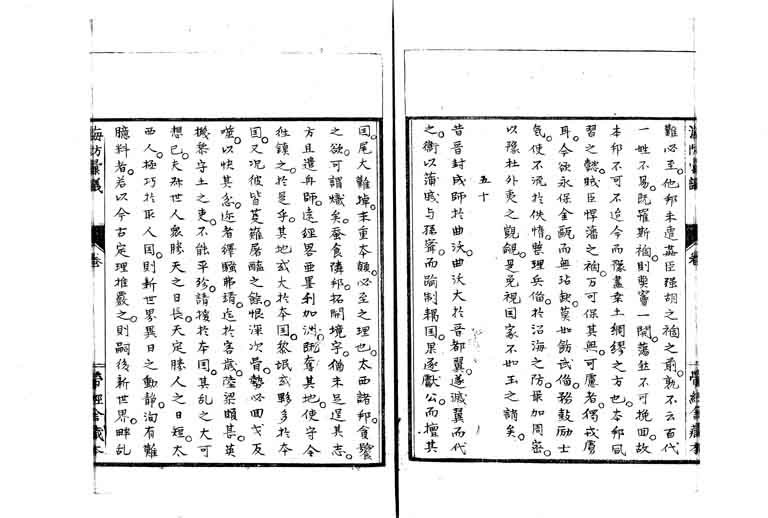 難必至。他邦未遭姦臣强胡之禍之前。孰不云百代
一姓不易。既罹斯禍。則奧竇一開。蕩然不可挽回。故
本邦不可不迨今而豫畫桑土綢繆之方也。本邦夙
習之懿。賊臣悍藩之禍。万可保其無。可慮者。獨戎虜
耳。今欲永保金甌而無玷缺。莫如飭武備。務鼓勵士
氣。使不流於佚惰。整理兵備。於沿海之防。最加周密。
以豫杜外夷之觀覦。是免視国家不如玉之誚矣。
五十
昔晋封成師於曲沃。曲沃大於晋都翼。遂滅翼而代
之。衛以蒲戚与孫甯。而踰制耦国。果逐獻公。而擅其
国。尾大難掉。末重本顛。必至之理也。太西諸邦。貪饕
之欲。可謂熾矣。蚕食隣邦。拓開境宇。猶未足逞其志。
方且遣舟師。遠經畧亜墨利加洲。既奪其地。使守令
往鎮之。於是乎。其地或大於本国。黎氓或夥多於本
国。又况彼皆莫難屠醢之餘。恨深次骨。勢必回戈反
噬。以快其忿。迩者繹騒弗靖。迄於客歳。陸梁頗甚。英
機黎守土之吏。不能平殄。請援於本国。其乱之大可
想已。夫㴱世人衆勝天之日長。天定勝人之日短。太
西人。極巧於取人国。則新世界異日之動静。洵有難
臆料者。若以今古定理推覈之。則嗣後新世界。畔乱
海防彙議
巻